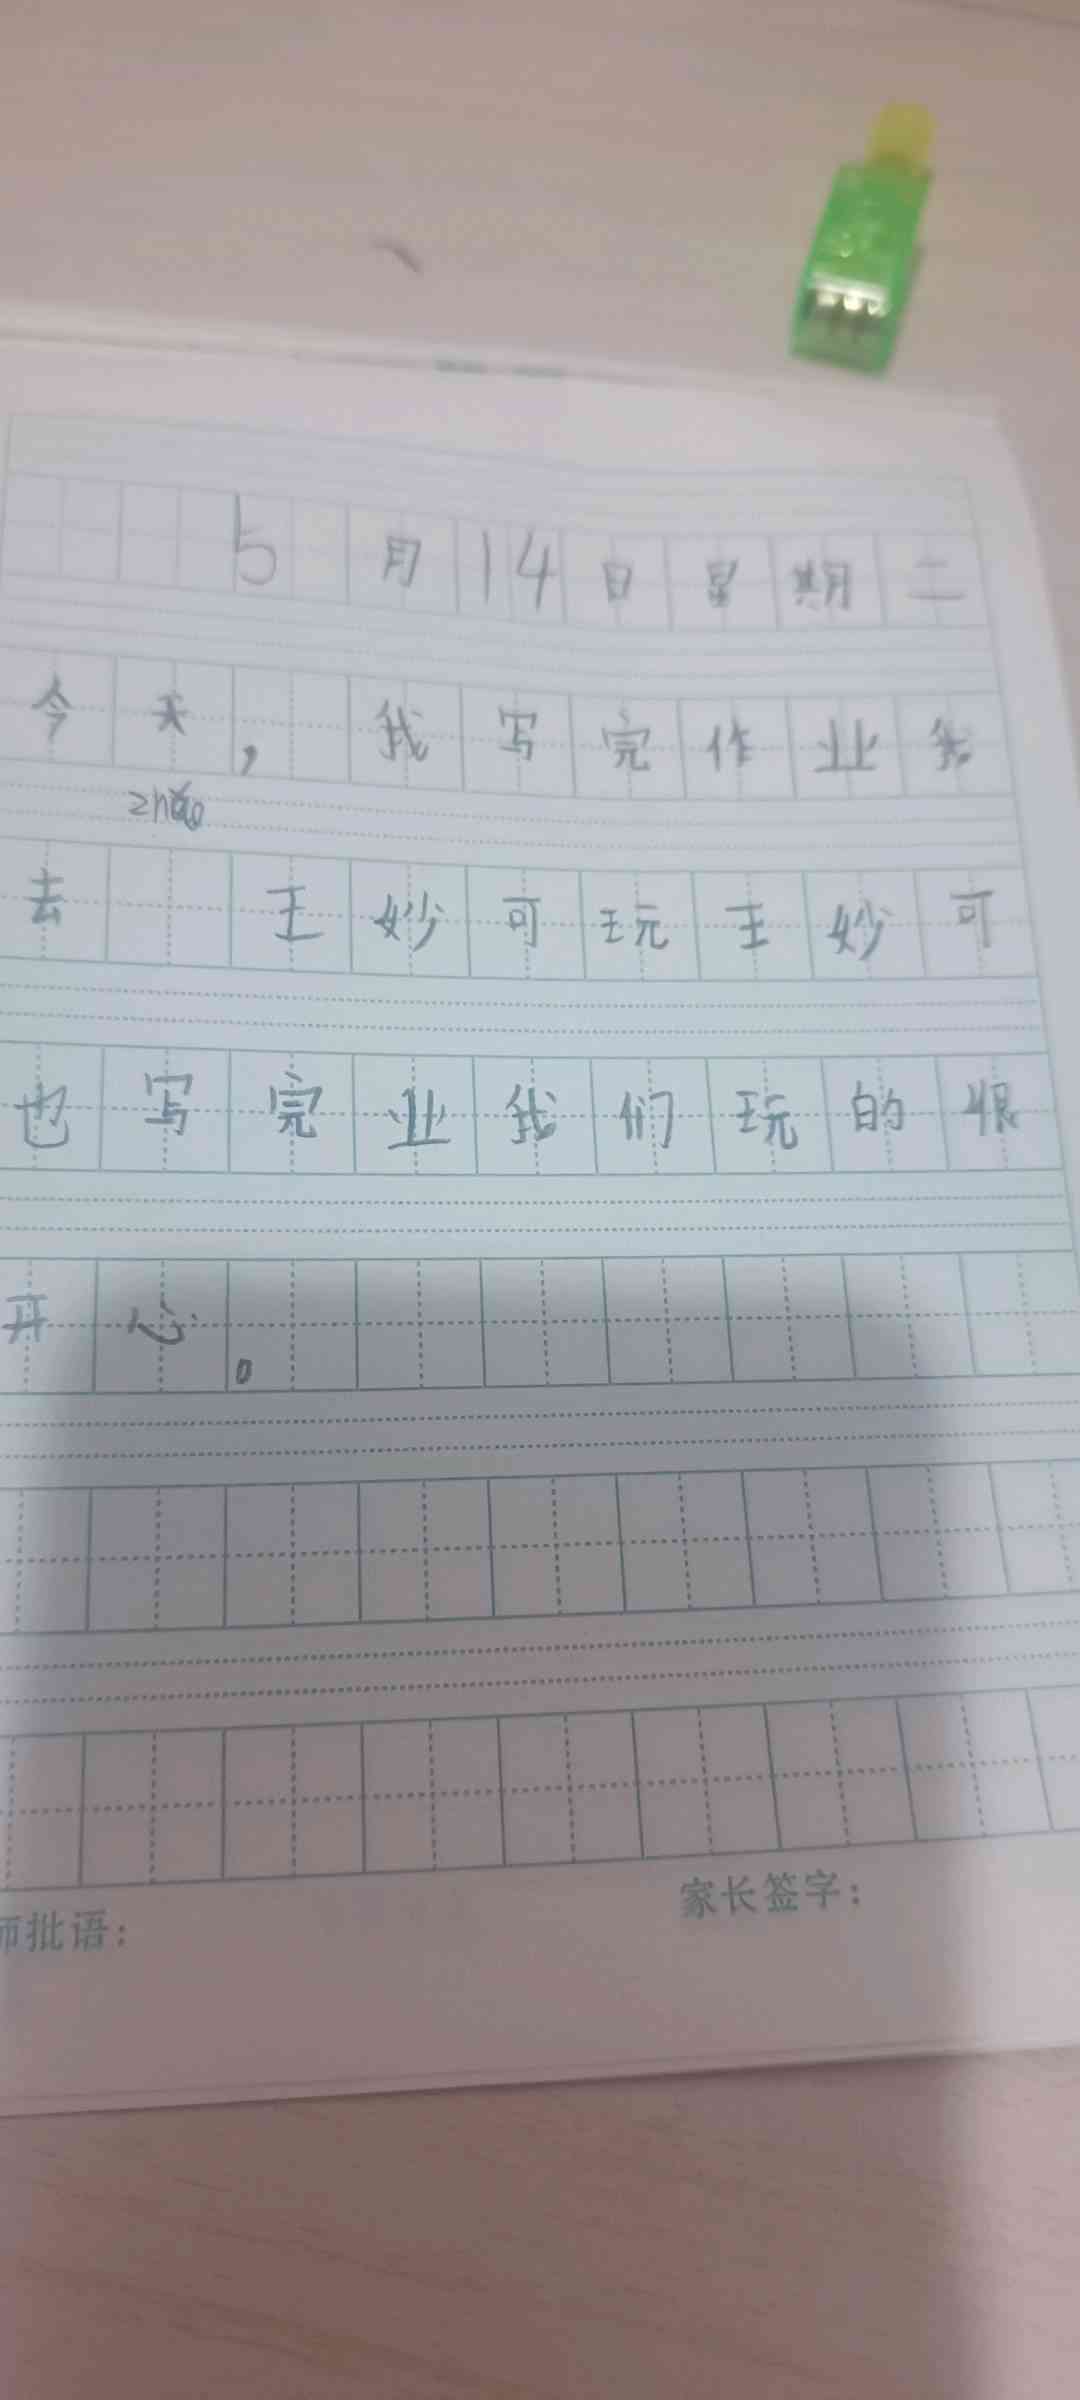 5月14日星期二
今天，我写完作业我
zhǎo
去 王妙可玩王妙可
也写完业我们玩的很
开心。
家长签字：
师批语：